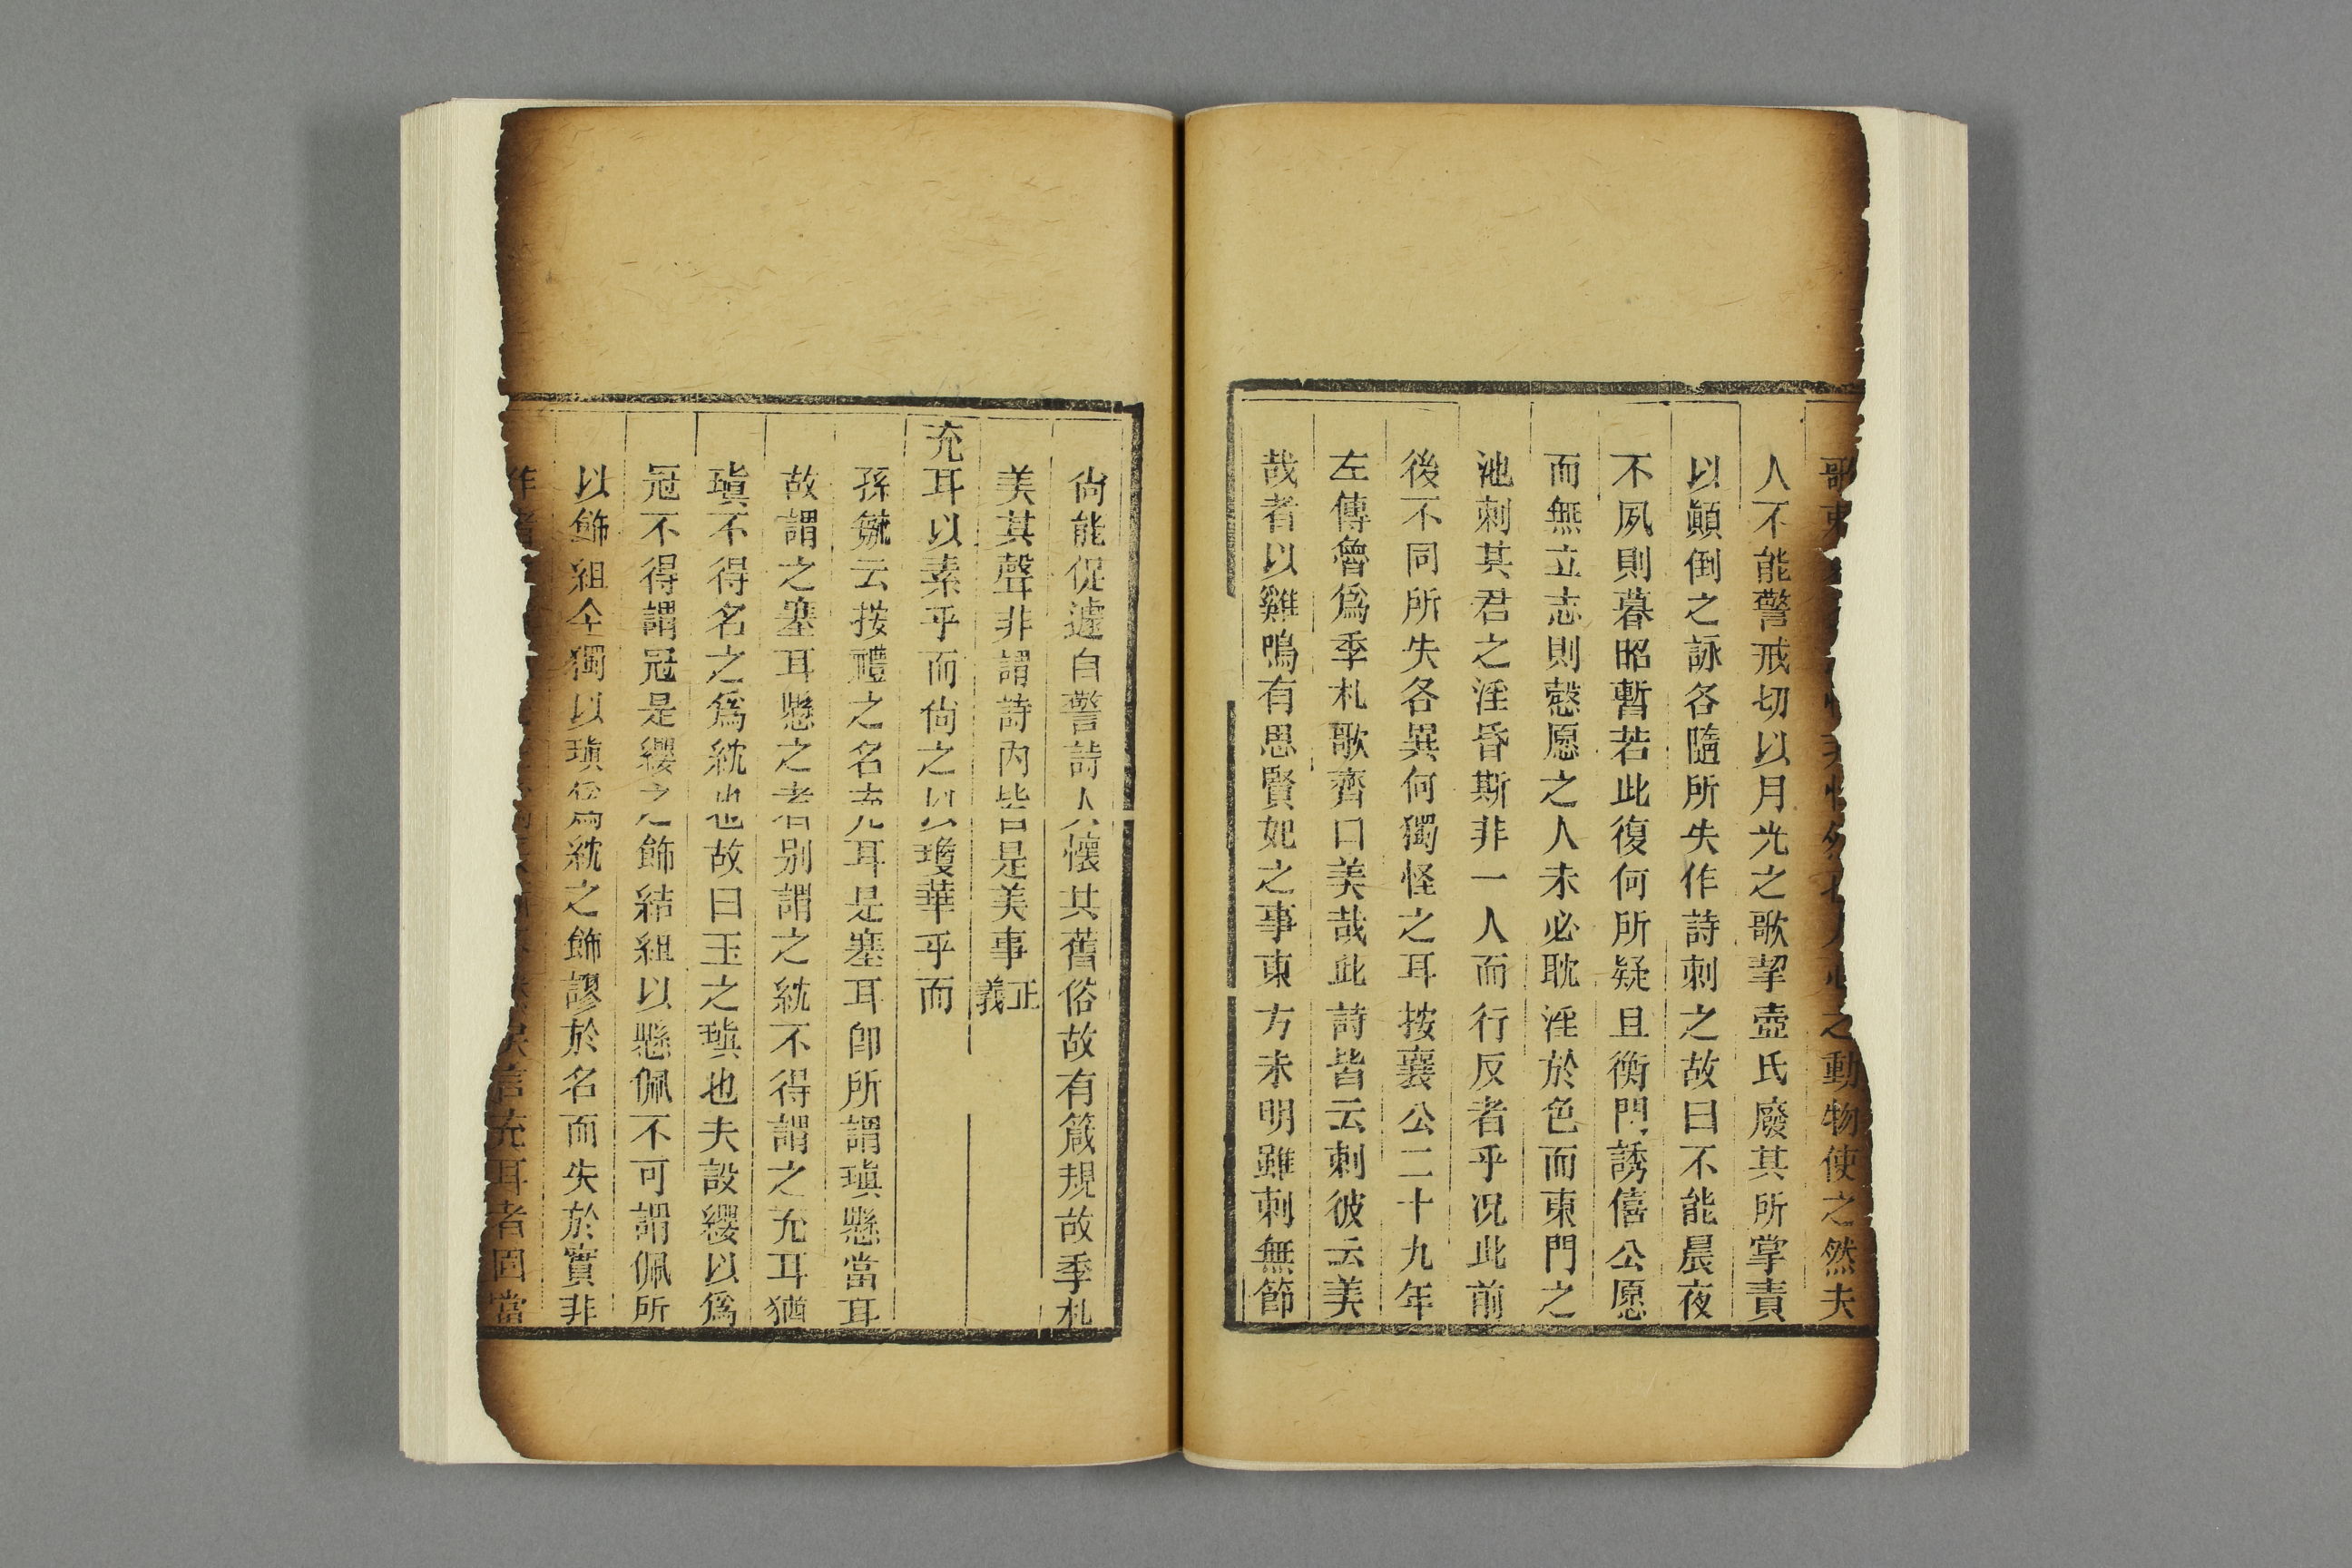 歌東之動物使之然夫
人不能警戒切以月光之歌挈壺氏廢其所掌責
以顚倒之詠各隨所失作詩刺之故曰不能晨夜
不夙則暮昭暫若此復何所疑且衡門誘僖公愿
而無立志則愨愿之人未必耽淫於色而東門之
池刺其君之淫昏斯非一人而行反者乎況此前
後不同所失各異何獨怪之耳按襄公二十九年
左傳魯爲季札歌齊曰美哉此詩皆云刺彼云美
哉者以雞鳴有思賢妃之事東方未明雖刺無節
尙能促遽自警詩人懷其舊俗故有箴規故季札
美其聲非謂詩內皆是美事正義
充耳以素乎而尙之以瓊華乎而
孫毓云按禮之名充耳是塞耳卽所謂瑱懸當耳
故謂之塞耳懸之者别謂之紞不得謂之充耳猶
瑱不得名之爲紞也故曰玉之瑱也夫設纓以爲
冠不得謂冠是纓之飾結組以懸佩不可謂佩所
以飾組今獨以瑱爲紞之飾謬於名而失於實非
作者言充耳者固當